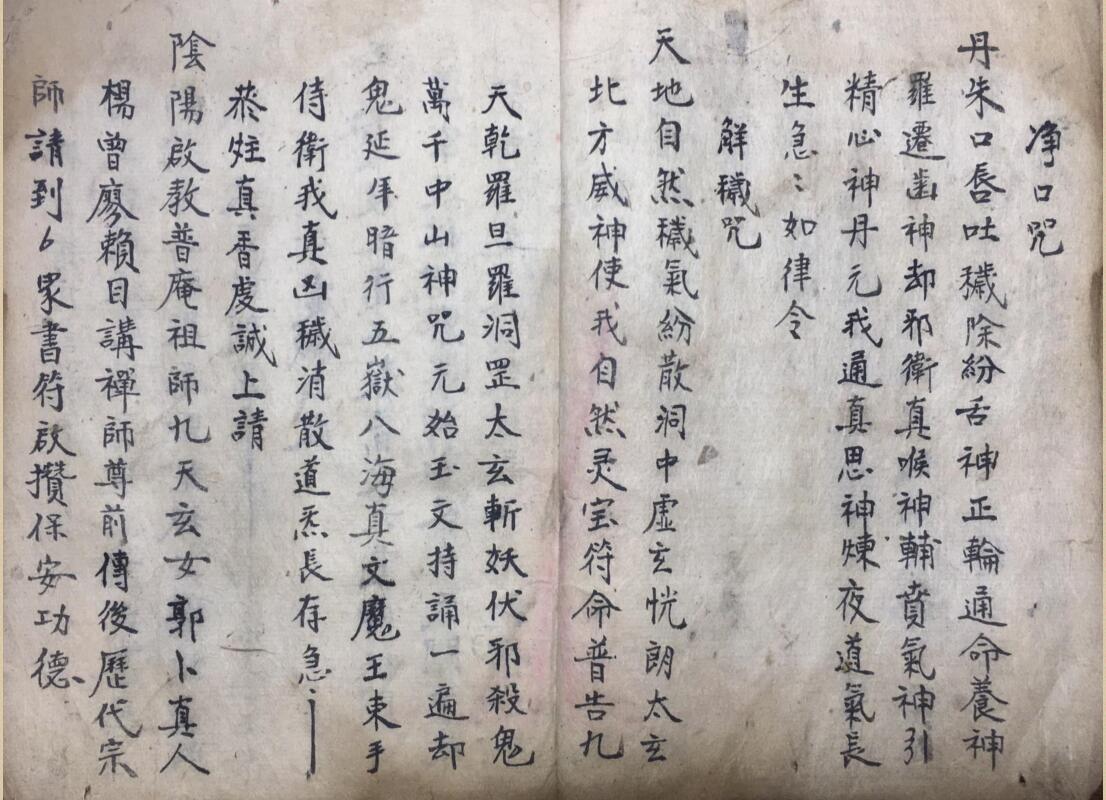 净口咒
丹朱口唇吐穢除紛舌神正輪通命養神
羅遷齒神却邪衛真喉神輔賁氣神引
精心神丹元我通真思神煉夜道氣長
生急〻如律令
觧穢咒
天地自然穢氣紛散洞中虛玄恍朗太玄
北方威神使我自然灵宝符命普告九
天乾羅旦羅洞罡太玄斬妖伏邪殺鬼
萬千中山神咒元始玉文持誦一遍却
鬼延年暗行五嶽八海真文魔王束手
侍衛我真凶穢消散道炁長存急〻
炷真香虔誠上請
陰陽啟教普庵祖師九天玄女郭卜真人
楊曾廖賴目講禪師尊前傳後歷代宗
師請到家書符啟攢保安功德